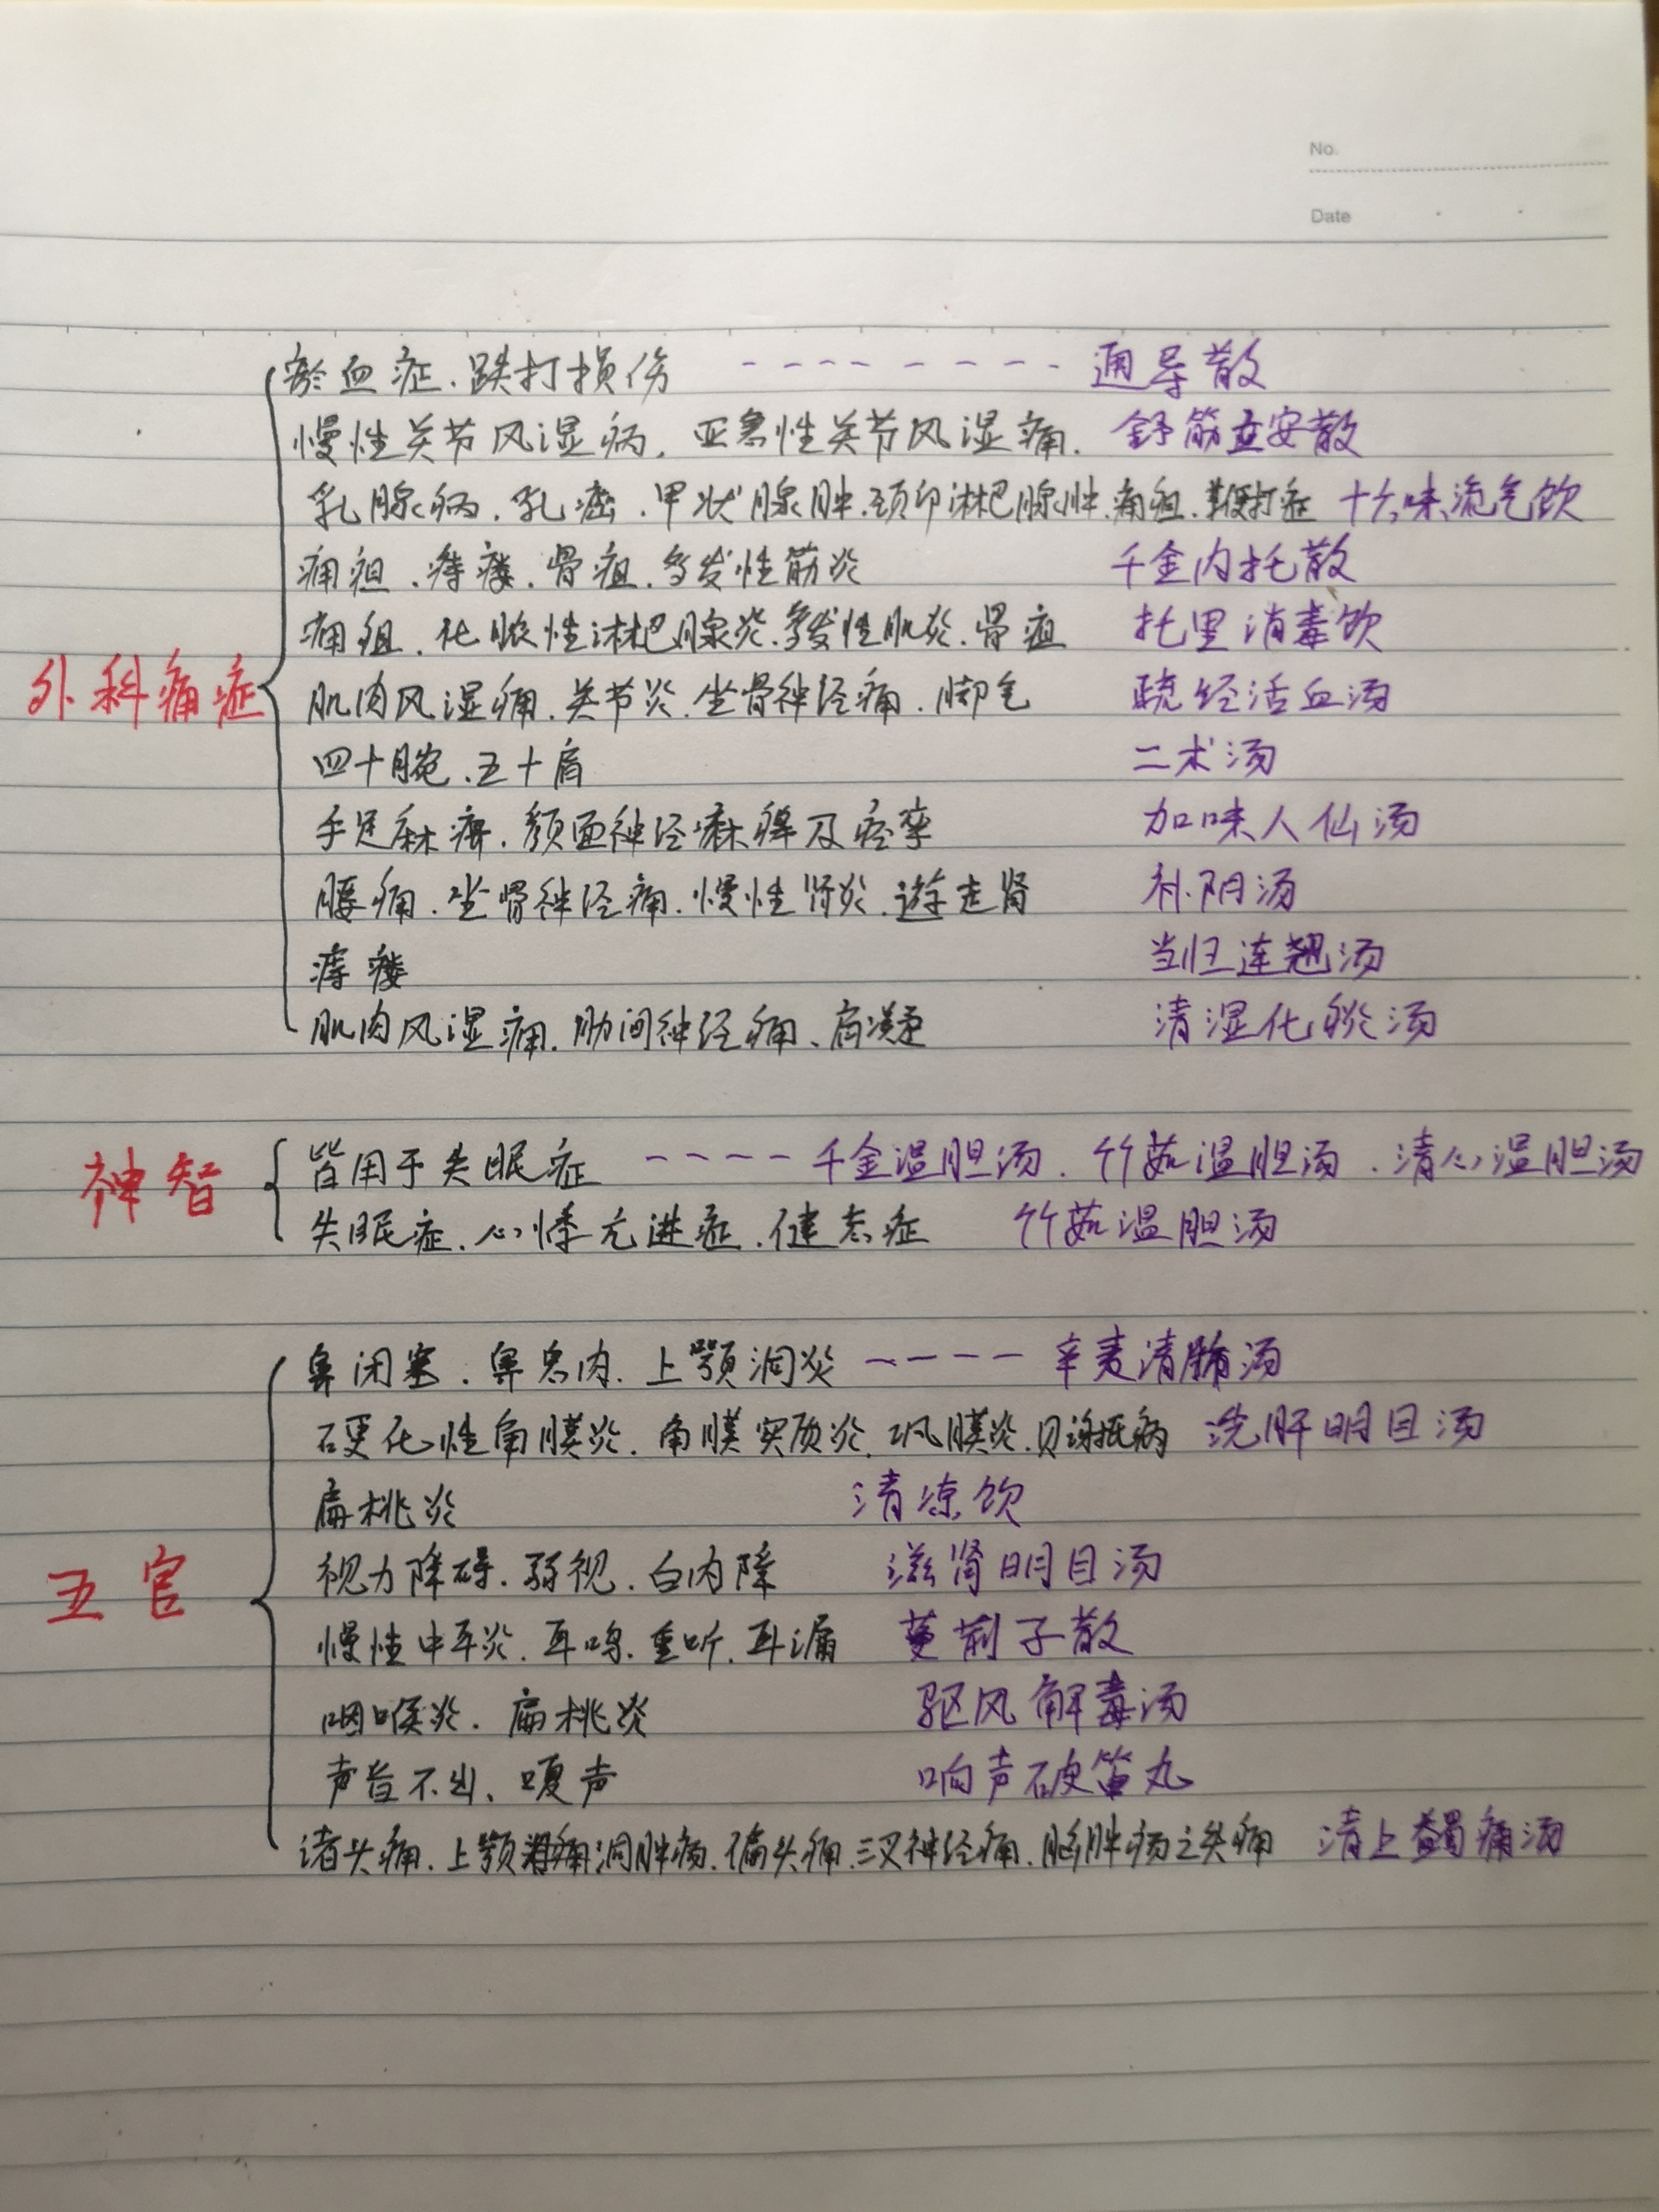 No.
Date
瘀血症、跌打损伤 -------- 通导散
慢性关节风湿病、亚急性关节风湿痛、舒筋立安散
乳腺病、乳癌、甲状腺肿、颈部淋巴腺肿、痈疽、鞭打症 十六味流气饮
痈疽、痔瘘、骨疽、多发性筋炎 千金内托散
痈疽、化脓性淋巴腺炎、多发性肌炎、骨疽 托里消毒饮
外科痛症
肌肉风湿痛、关节炎、坐骨神经痛、脚气 疏经活血汤
四十腕、五十肩 二术汤
手足麻痹、颜面神经麻痹及痉挛 加味八仙汤
腰痛、坐骨神经痛、慢性肾炎、游走肾 补阴汤
痔瘘 当归连翘汤
肌肉风湿痛、肋间神经痛、肩凝 清湿化痰汤
神智
皆用于失眠症 ---- 千金温胆汤、竹茹温胆汤、清心温胆汤
失眠症、心悸亢进症、健忘症 竹茹温胆汤
鼻闭塞、鼻息肉、上颚洞炎 ---- 辛夷清肺汤
硬化性角膜炎、角膜实质炎、巩膜炎、 洗肝明目汤
扁桃炎 清凉饮
五官
视力障碍、弱视、白内障 滋肾明目汤
慢性中耳炎、耳鸣、重听、耳漏 蔓荆子散
咽喉炎、扁桃炎 驱风解毒汤
声音不出、嗄声 响声破笛丸
诸头痛、上颚洞肿疡、偏头痛、三叉神经痛、脑肿疡之头痛 清上蠲痛汤